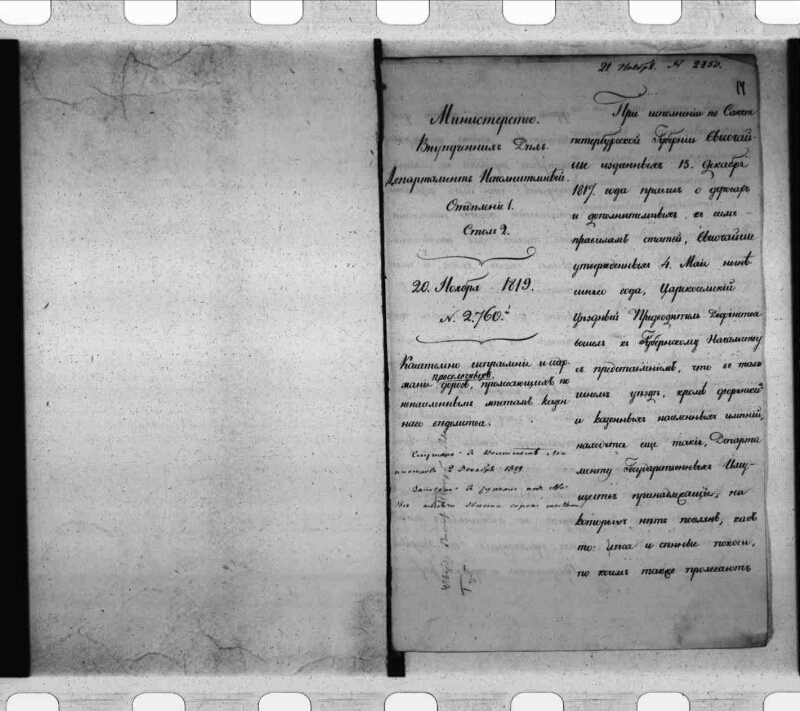 21 Ноябр. № 2350.
14
Министерство.
Внутреннихъ Дѣлъ.
Департаментъ Исполнительный.
Отдѣленіе 1.
Столъ 2.
20. Ноября. 1819.
№ 2.760.
Касательно исправленія и содер-
жанія проселочныхъ дорогъ, пролегающихъ по
ненаселеннымъ мѣстамъ казен-
наго вѣдомства.
Слушано въ Комитетѣ
2 Декабря 1819
При исполненіи по Санкт
петербургской Губерніи Высочай-
ше изданныхъ 13. Декабря
1817. года правилъ о дорогахъ
и дополнительныхъ къ симъ
правиламъ статей, Высочайше
утвержденныхъ 4. Маія нынѣ
шняго года, Царскосельскій
уѣздный Предводитель Дворянства
вошелъ къ Губернскому Начальству
съ представленіемъ, что въ тамо
шнемъ уѣздѣ, кромѣ дворянскихъ
и казенныхъ населенныхъ имѣній,
находятся еще такія, Департа
менту Государственныхъ Иму-
ществъ принадлежащія, на
которыхъ нѣтъ поселянъ, какъ
то: лѣса и сѣнные покосы,
по коимъ также пролегаютъ